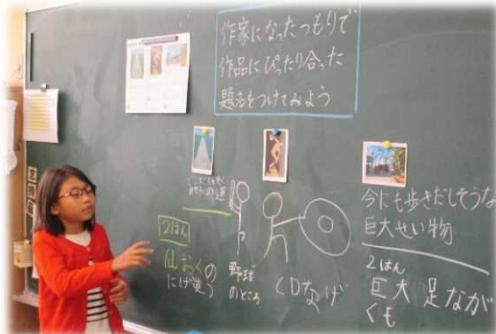 作家になったつもりで
作品にぴったり合った
題名をつけてみよう
2はん
仙おくの
にげ道
野球
のところ
CDなげ
今にも歩きだしそうな
巨大せい物
2はん
巨大足なが
くも